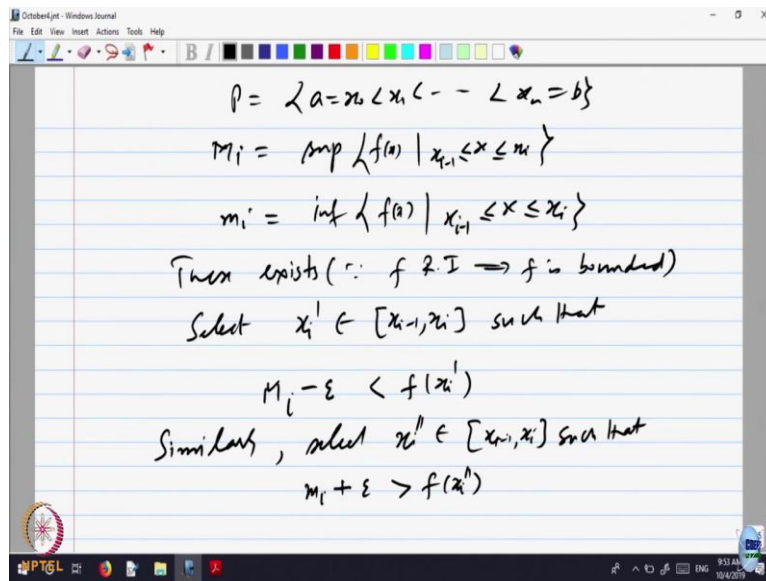 October4.jnt - Windows Journal
File Edit View Insert Actions Tools Help
B I
P = {a = x₀ < x₁ < - - < xₙ = b}
Mᵢ = sup {f(x) | xᵢ₋₁ ≤ x ≤ xᵢ}
mᵢ = inf {f(x) | xᵢ₋₁ ≤ x ≤ xᵢ}
These exists (∵ f R.I ⟹ f is bounded)
Select xᵢ' ∈ [xᵢ₋₁, xᵢ] such that
Mᵢ - ε < f(xᵢ')
Similarly, select xᵢ'' ∈ [xᵢ₋₁, xᵢ] such that
mᵢ + ε > f(xᵢ'')
NPTEL
ENG
9:53 AM
10/4/2019